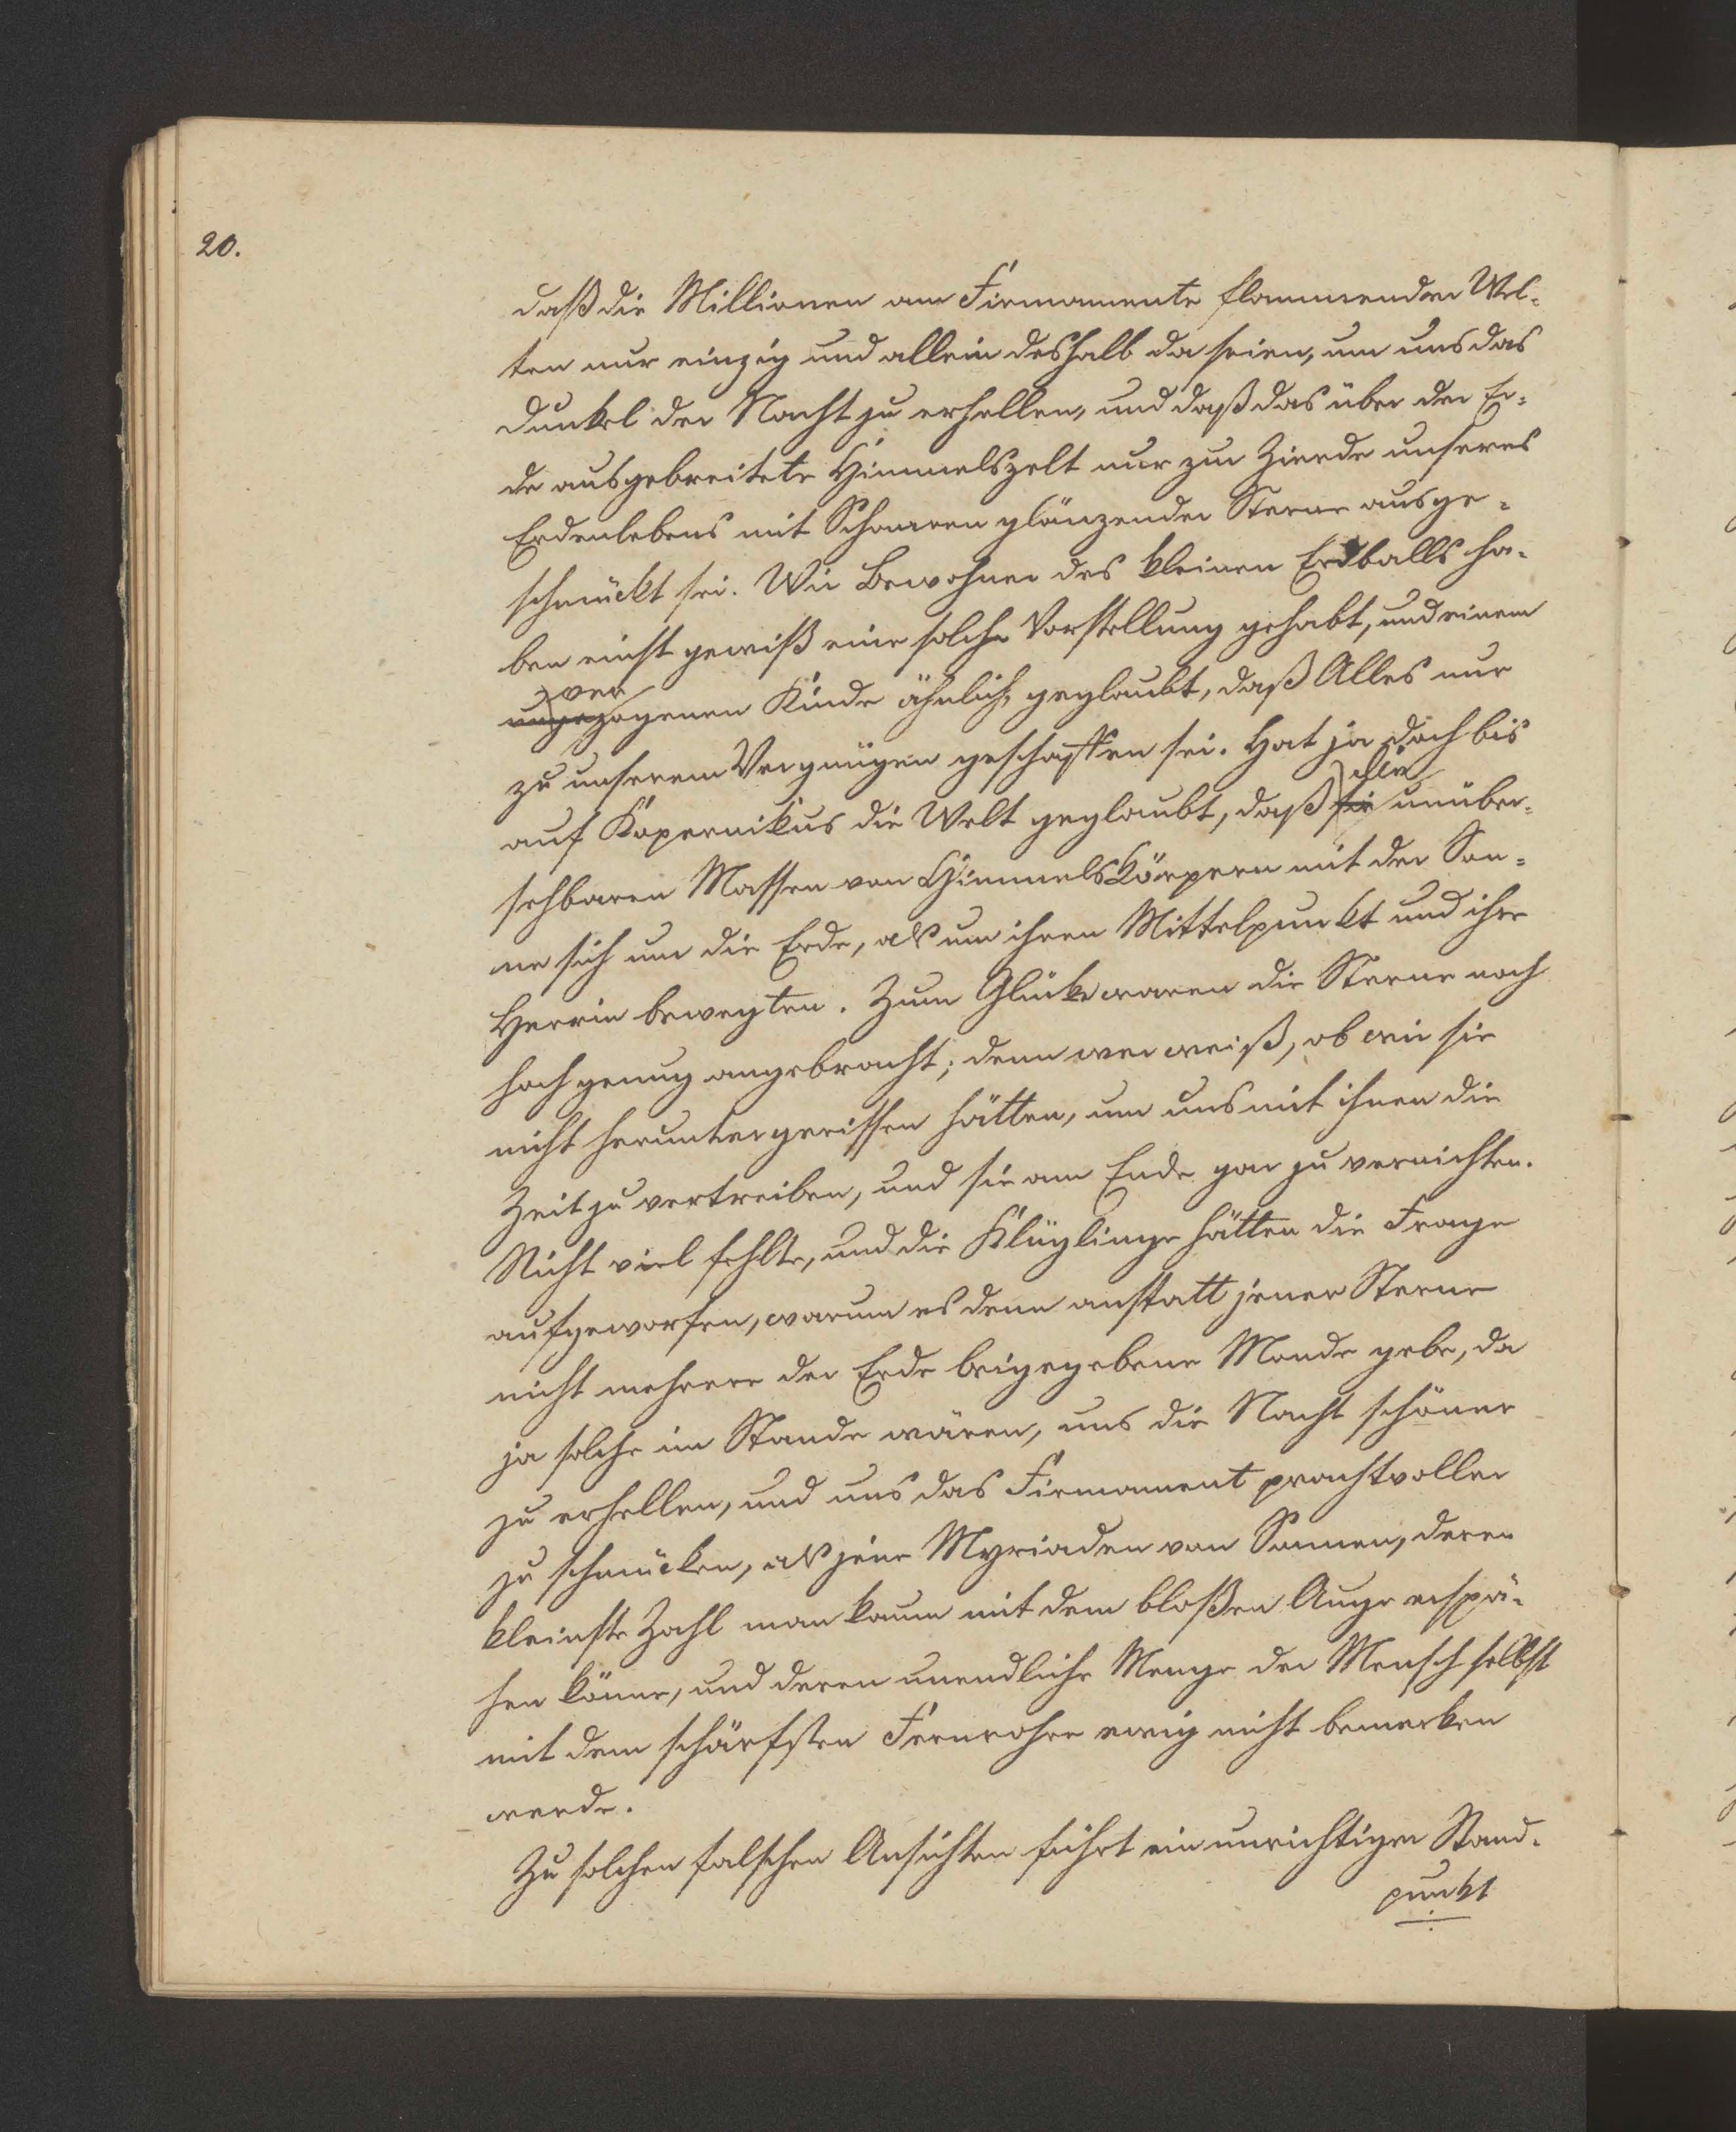 20.
daß die Millionen am Firmamente flammender Wel-
ten nur einzig und allein deshalb da seien, um uns das
Dunkel der Nacht zu erhellen, und daß das über der Er-
de ausgebreitete Himmelszelt nur zur Zierde unseres
Erdenlebens mit Schaaren glänzender Sterne ausge-
schmückt sei. Wir Bewohner des kleinen Erdballs ha-
ben einst gewiß eine solche Vorstellung gehabt, und einem
ver
ungezogenen Kinde ähnlich, geglaubt, daß Alles nur
zu unserem Vergnügen geschaffen sei. Hat ja doch bis
alle
auf Kopernikus die Welt geglaubt, daß die unüber-
sehbaren Massen von Himmelskörpern mit der Son-
ne sich um die Erde, als um ihren Mittelpunkt und ihre
Herrin bewegten. Zum Glücke waren die Sterne noch
hoch genug angebracht; denn wer weiß, ob wir sie
nicht heruntergerissen hätten, um uns mit ihnen die
Zeit zu vertreiben, und sie am Ende gar zu vernichten.
Nicht viel fehlte, und die Klüglinge hätten die Frage
aufgeworfen, warum es denn anstatt jener Sterne
nicht mehrere der Erde beigegebene Monde gebe, da
ja solche im Stande wären, uns die Nacht schöner
zu erhellen, und uns das Firmament prachtvoller
zu schmücken, als jene Myriaden von Sonnen, deren
kleinste Zahl man kaum mit dem bloßen Auge erspä-
hen könne, und deren unendliche Menge der Mensch selbst
mit dem schärfsten Fernrohre ewig nicht bemerken
werde.
Zu solchen falschen Ansichten führt ein unrichtiger Stand-
punkt